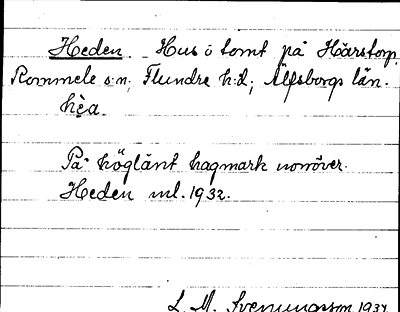 Heden Hus o tomt på Håårstorp.
Rommele s:n, Flundre h:d, Älfsborgs län.
hèa.
På höglänt hagmark norröver.
Heden ml. 1932.
L. M. Svenungsson 1932